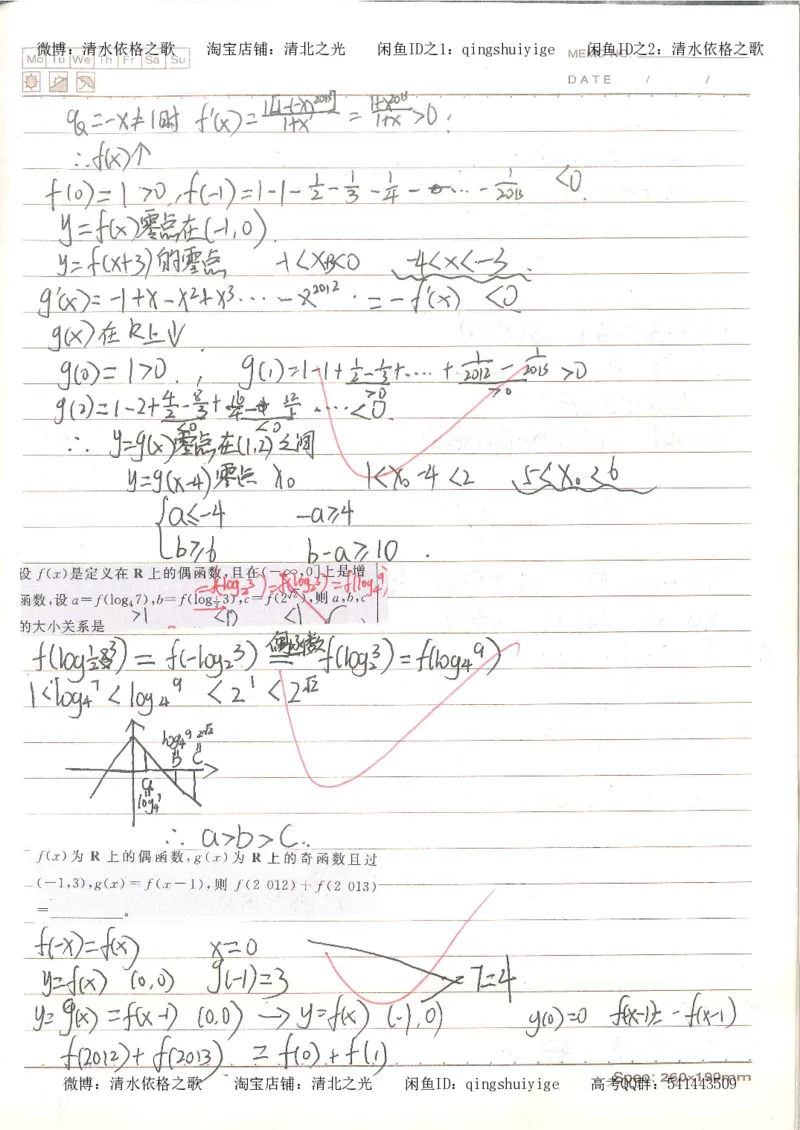 微博：清水依格之歌 淘宝店铺：清北之光 闲鱼ID之1：qingshuiyige 闲鱼ID之2：清水依格之歌
Mo Tu We Th Fr Sa Su
MEMO NO.
DATE / /
=-x≠1时 f'(x)= = >0;
∴f(x)↑
f(0)=1>0, f(-1)=1-1-1/2-1/3-1/4-…-1/2013 <0
y=f(x)零点在(-1,0)
y=f(x+3)的零点 -1<x+3<0 -4<x<-3.
g'(x)=-1+x-x²+x³…-x^2012 =-f'(x) <0
g(x)在R上↓
g(0)=1>0, g(1)=1-1+1/2-1/3+…+1/2012-1/2013>0
>0 >0
g(2)=1-2+4/2-8/3+ … <0.
<0 <0
∴ y=g(x)零点在(1,2)之间
y=g(x-4)零点 x₀ 1<x₀-4<2 5<x₀<6
{a≤-4 -a≥4
b≥6 b-a≥10.
设 f(x)是定义在 R 上的偶函数,且在(-∞,0]上是增
=f(log₂3)=f(log₂3)=f(log₄9)
函数,设 a=f(log₄7),b=f(log_{1/2}3),c=f(2^√2),则 a,b,c
的大小关系是
f(log_{1/2}3)=f(-log₂3) 偶函数 = f(log₂3)=f(log₄9)
1<log₄7<log₄9 <2¹<2^√2
log₄9 2^√2
B C
a
log₄7
∴ a>b>c.
f(x)为 R 上的偶函数,g(x)为 R 上的奇函数且过
(-1,3),g(x)=f(x-1),则 f(2 012)+f(2 013)
=________。
f(-x)=f(x) x=0
y=f(x) (0,0) g(-1)=3 T=4
y=g(x)=f(x-1) (0,0)→y=f(x) (-1,0) g(0)=0 f(x-1)=-f(x-1)
f(2012)+f(2013) =f(0)+f(1)
Spec: 260×190mm
微博：清水依格之歌 淘宝店铺：清北之光 闲鱼ID：qingshuiyige 高考QQ群：541443509